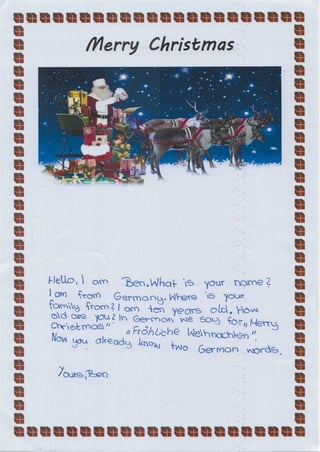 Merry Christmas
Hello, I am Ben. What is your name?
I am from Germany. Where is your
family from? I am ten years old. How
old are you? In German we say for „Merry
Christmas" „Fröhliche Weihnachten".
Now you already know two German words.
Yours, Ben